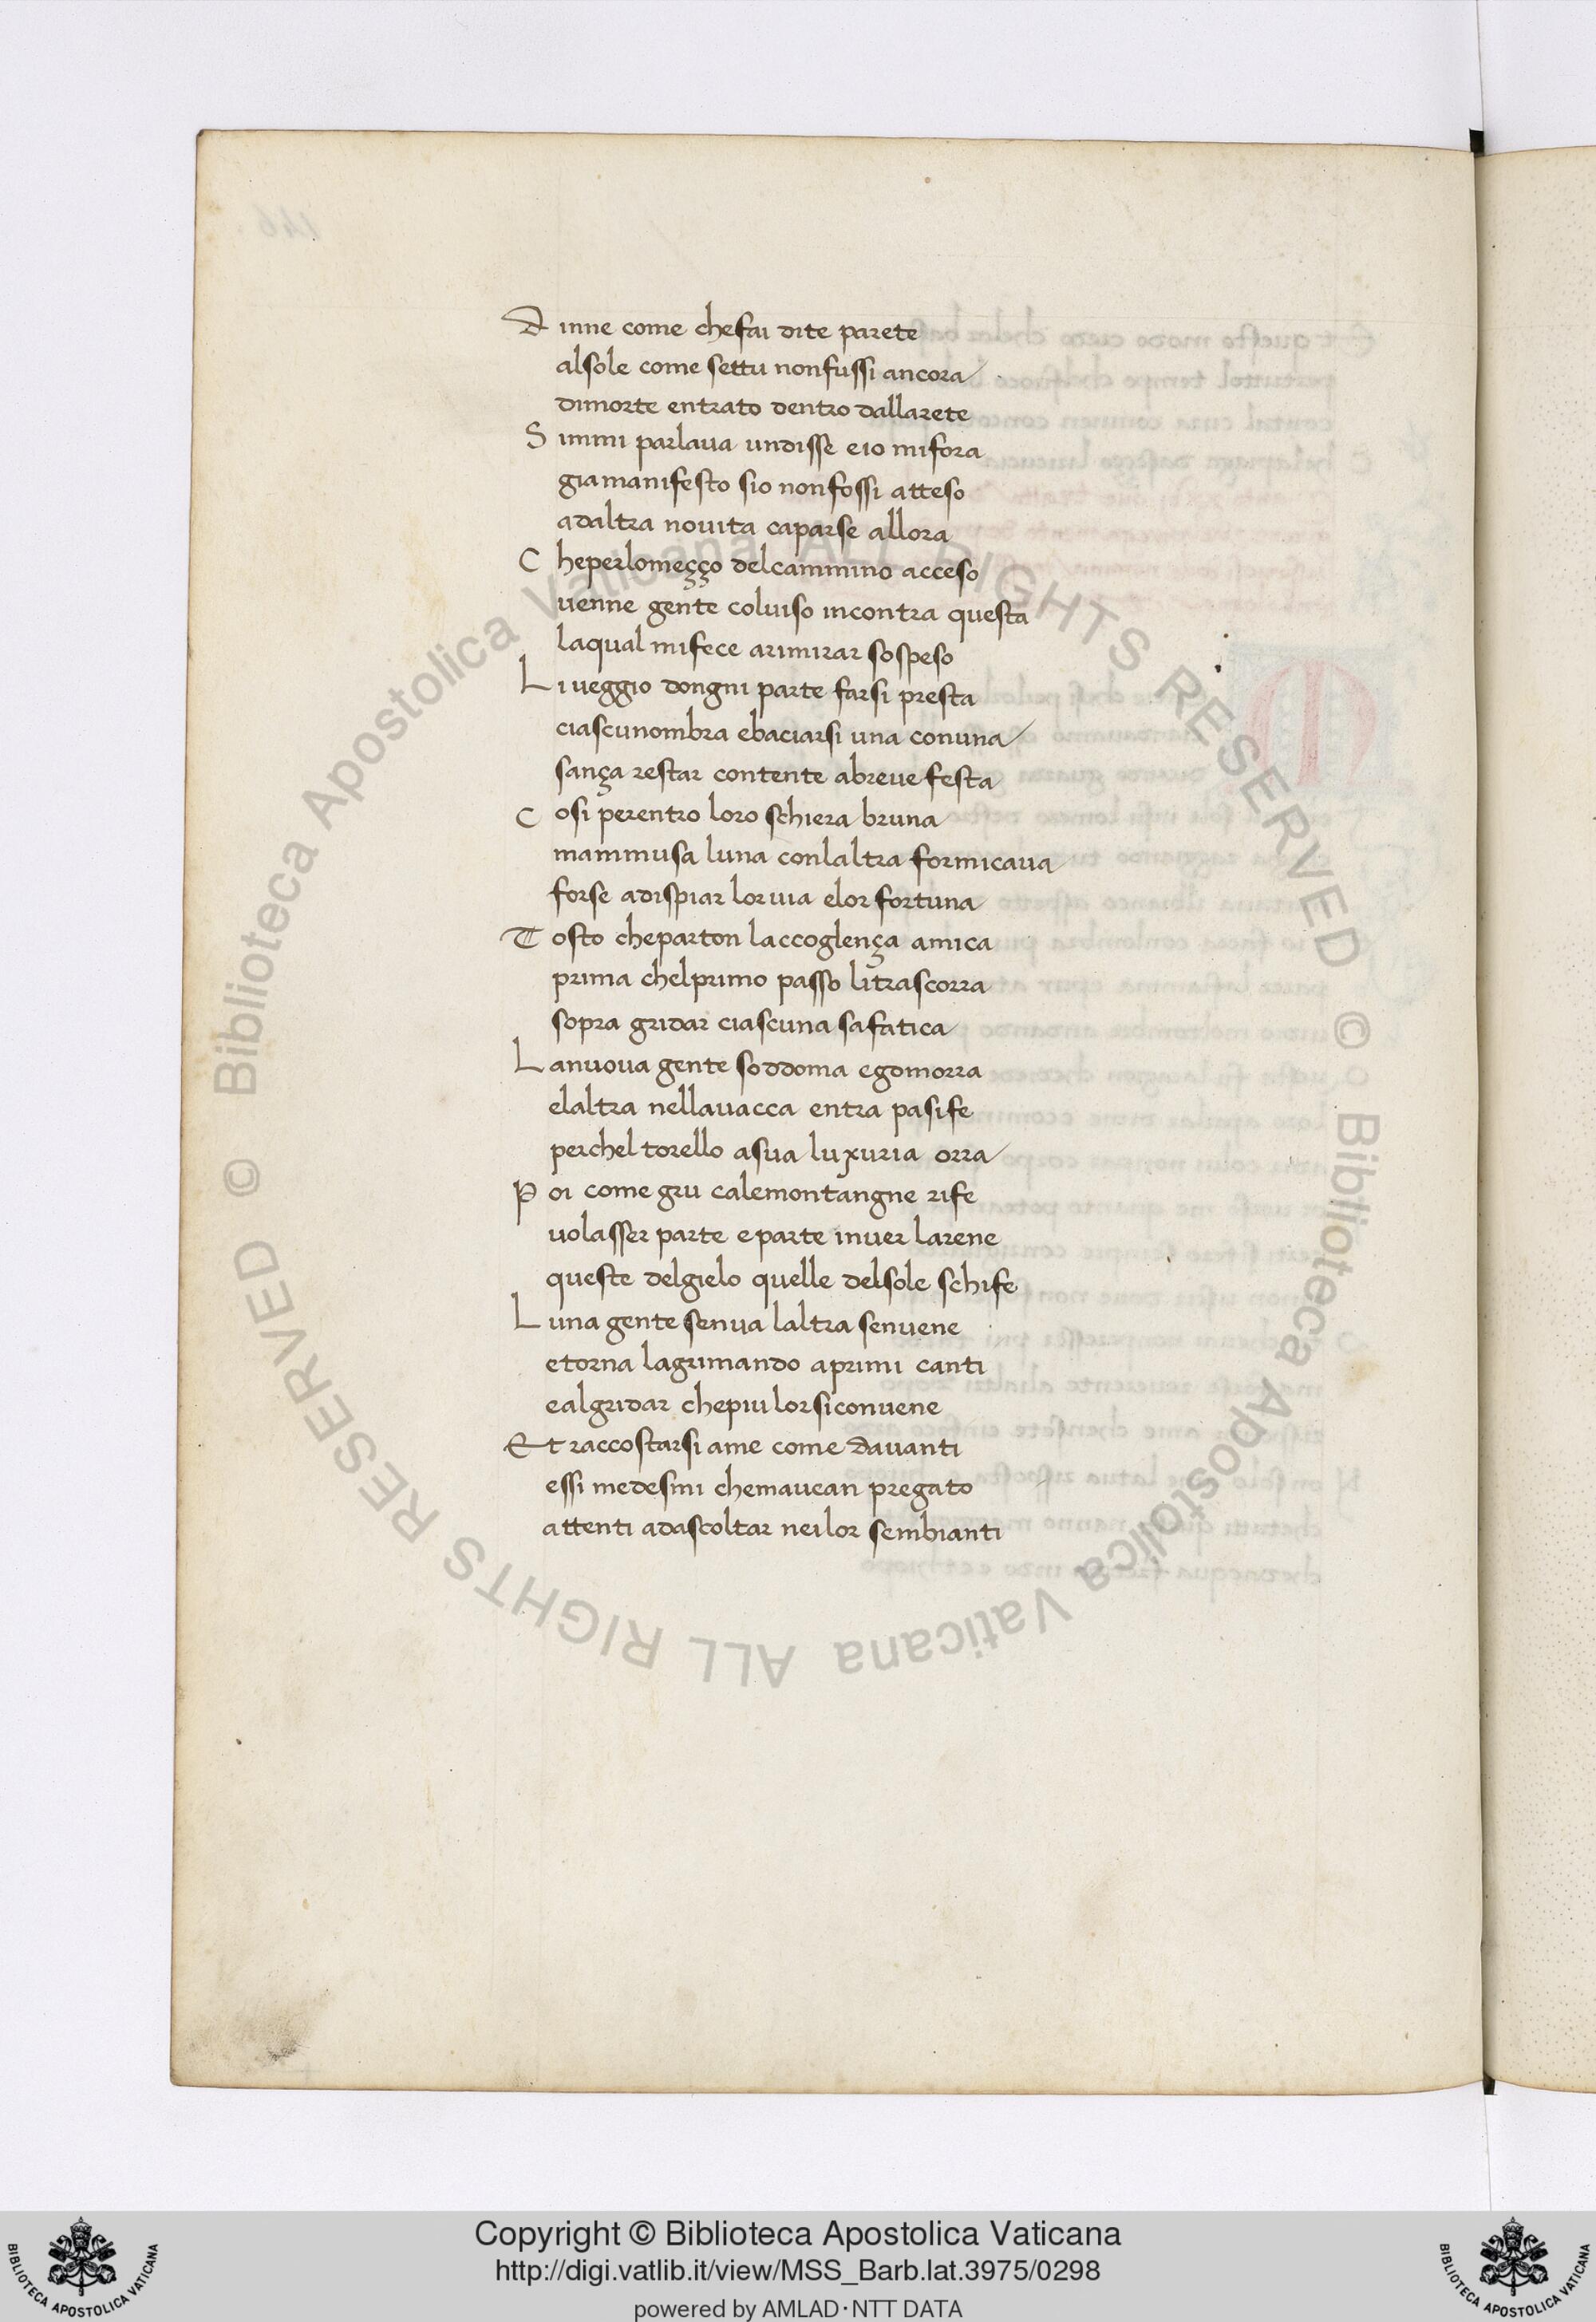 D inne come chefai dite parete
alsole come settu nonfussi ancora
dimorte entrato dentro dallarete
S immi parlaua undisse eio mifora
giamanifesto sio nonfossi atteso
adaltra nouita caparse allora
C heperlomeçço delcammino acceso
uenne gente coluiso incontra questa
laqual mifece arimirar sospeso
L iueggio dongni parte farsi presta
ciascunombra ebaciarsi una conuna
sança restar contente abreue festa
C osi perentro loro schiera bruna
mammusa luna conlaltra formicaua
forse adispiar loruia elor fortuna
T osto cheparton laccoglença amica
prima chelprimo passo litrascorra
sopra gridar ciascuna safatica
L anuoua gente soddoma egomorra
elaltra nellauacca entra pasife
perchel torello asua luxuria orra
P oi come gru calemontangne rife
uolasser parte eparte inuer larene
queste delgielo quelle delsole schife
L una gente senua laltra senuene
etorna lagrimando aprimi canti
ealgridar chepiu lorsiconuene
E t raccostarsi ame come dauanti
essi medesimi chemauean pregato
attenti adascoltar neilor sembianti
Copyright © Biblioteca Apostolica Vaticana
http://digi.vatlib.it/view/MSS_Barb.lat.3975/0298
powered by AMLAD·NTT DATA
BIBLIOTECA APOSTOLICA VATICANA
BIBLIOTECA APOSTOLICA VATICANA
© Biblioteca Apostolica Vaticana ALL RIGHTS RESERVED © Biblioteca Apostolica Vaticana ALL RIGHTS RESERVED